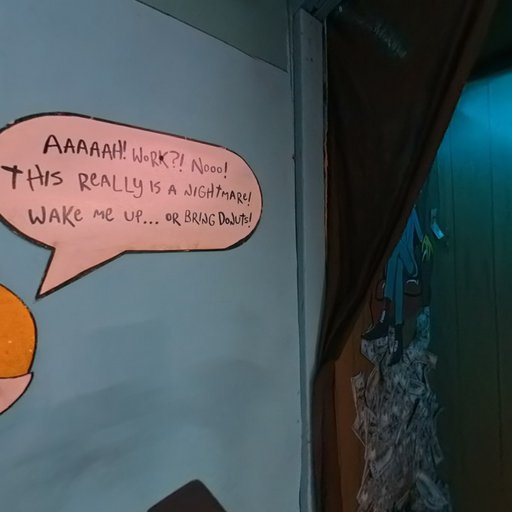 AAAAAH! WORK?! NOOO!
THIS REALLY IS A NIGHTMARE!
WAKE ME UP... OR BRING DONUTS!